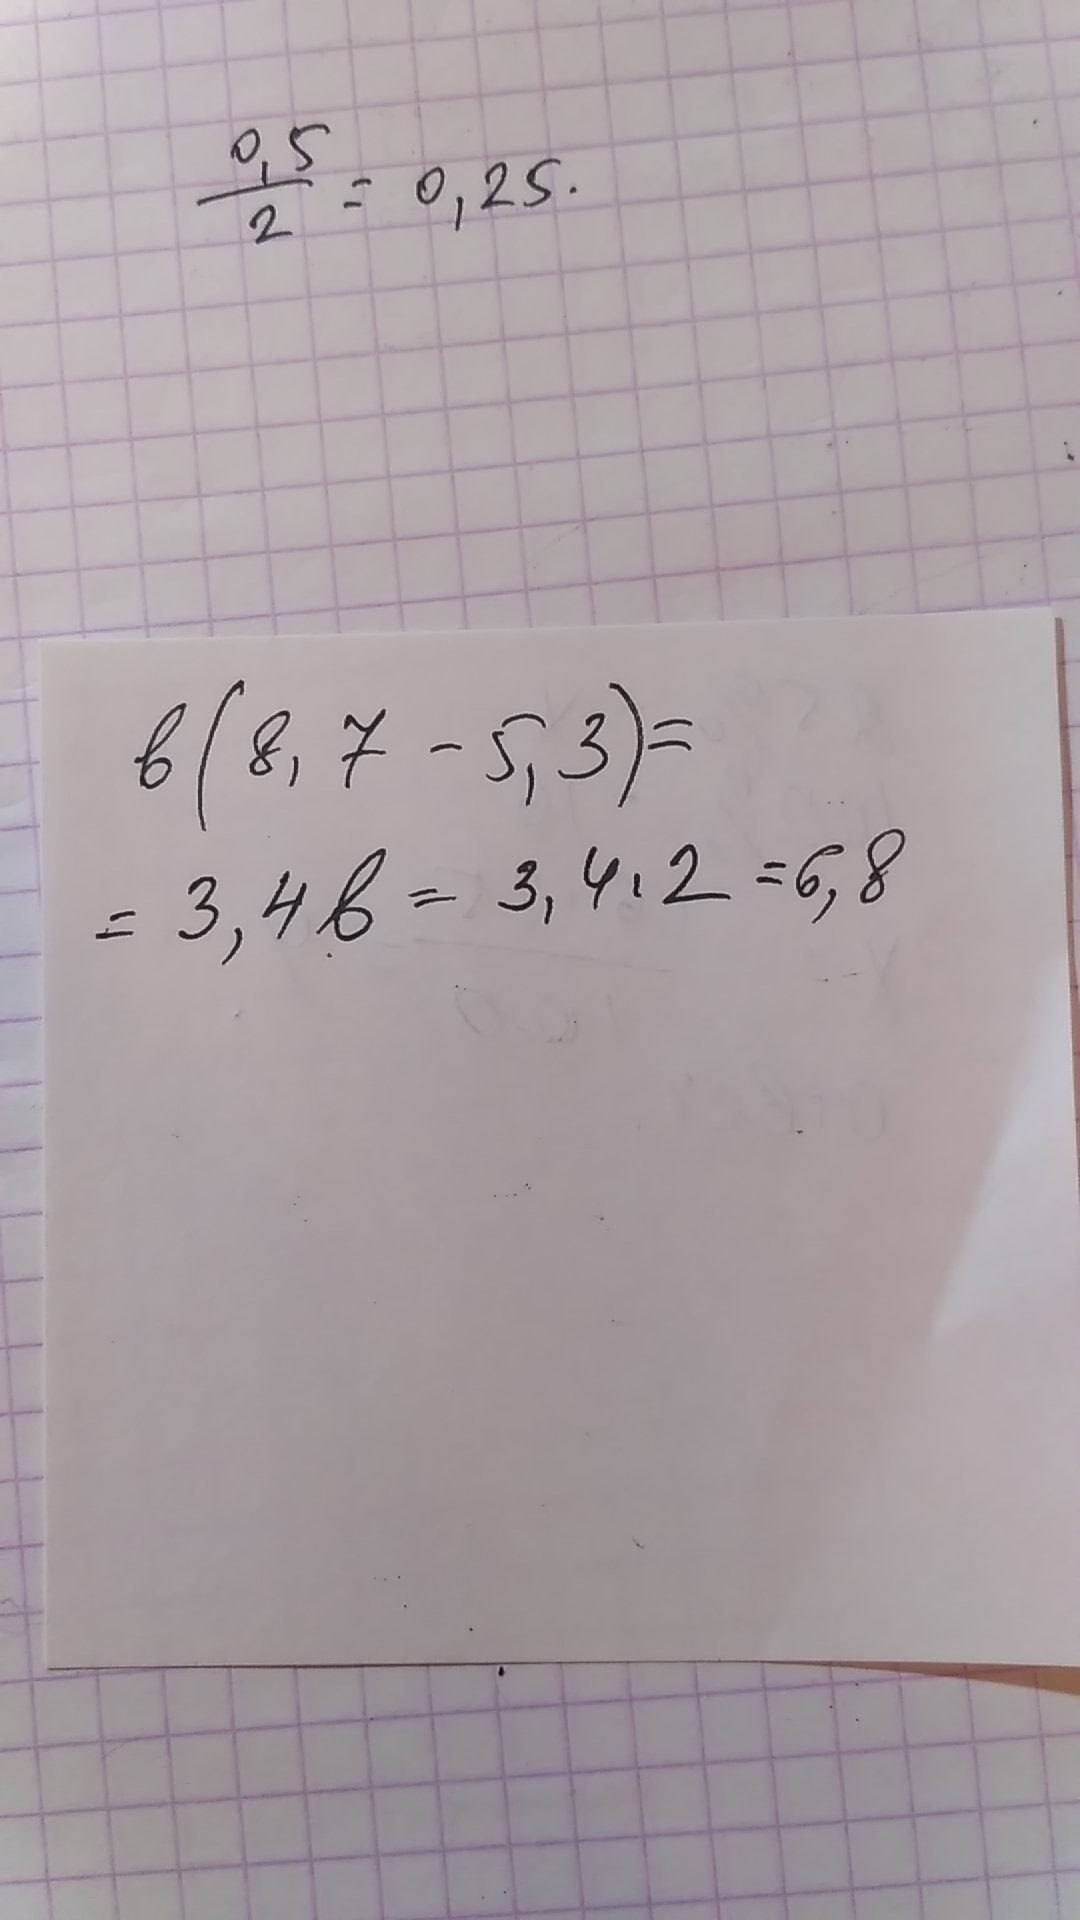 0,5/2 = 0,25.
в(8,7 - 5,3)=
= 3,4в = 3,4·2 =6,8